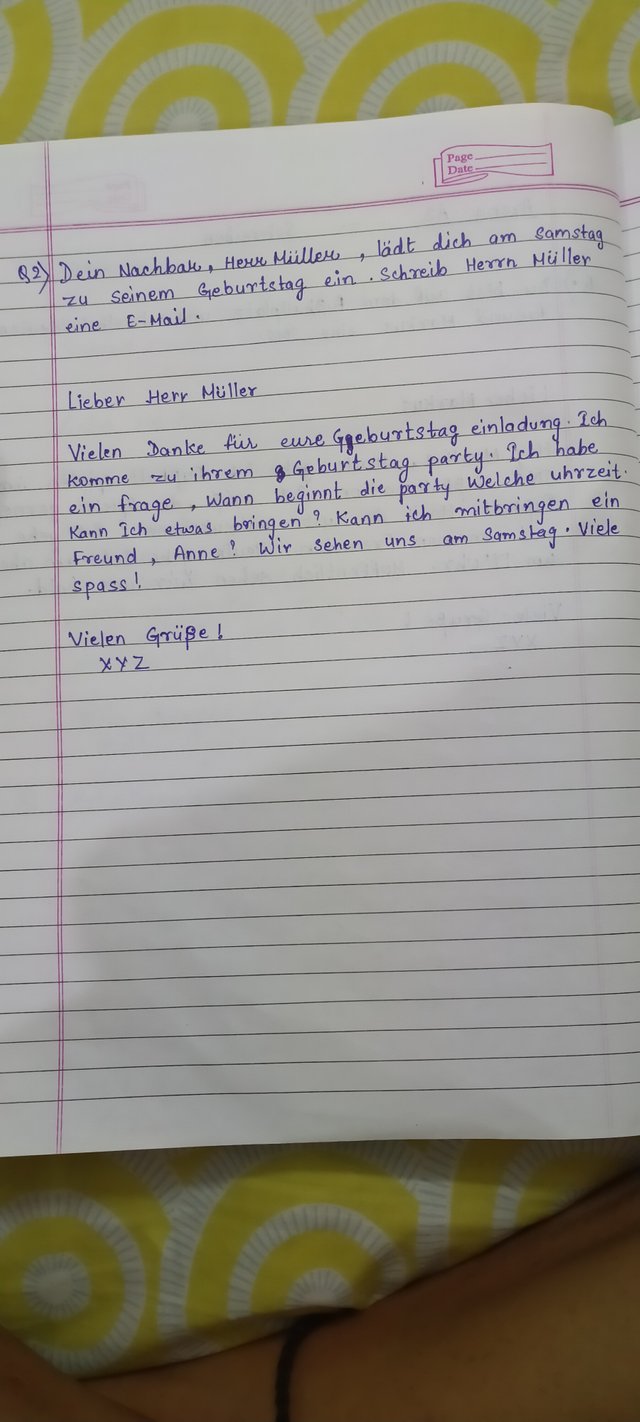 Page
Date
Q2) Dein Nachbar, Herr Müller, lädt dich am Samstag
zu seinem Geburtstag ein. Schreib Herrn Müller
eine E-Mail.
Lieber Herr Müller
Vielen Danke für eure Geburtstag einladung. Ich
komme zu ihrem Geburtstag party. Ich habe
ein frage, wann beginnt die party welche uhrzeit.
Kann Ich etwas bringen? Kann ich mitbringen ein
Freund, Anne? Wir sehen uns am Samstag. Viele
spass!
Vielen Grüße!
XYZ